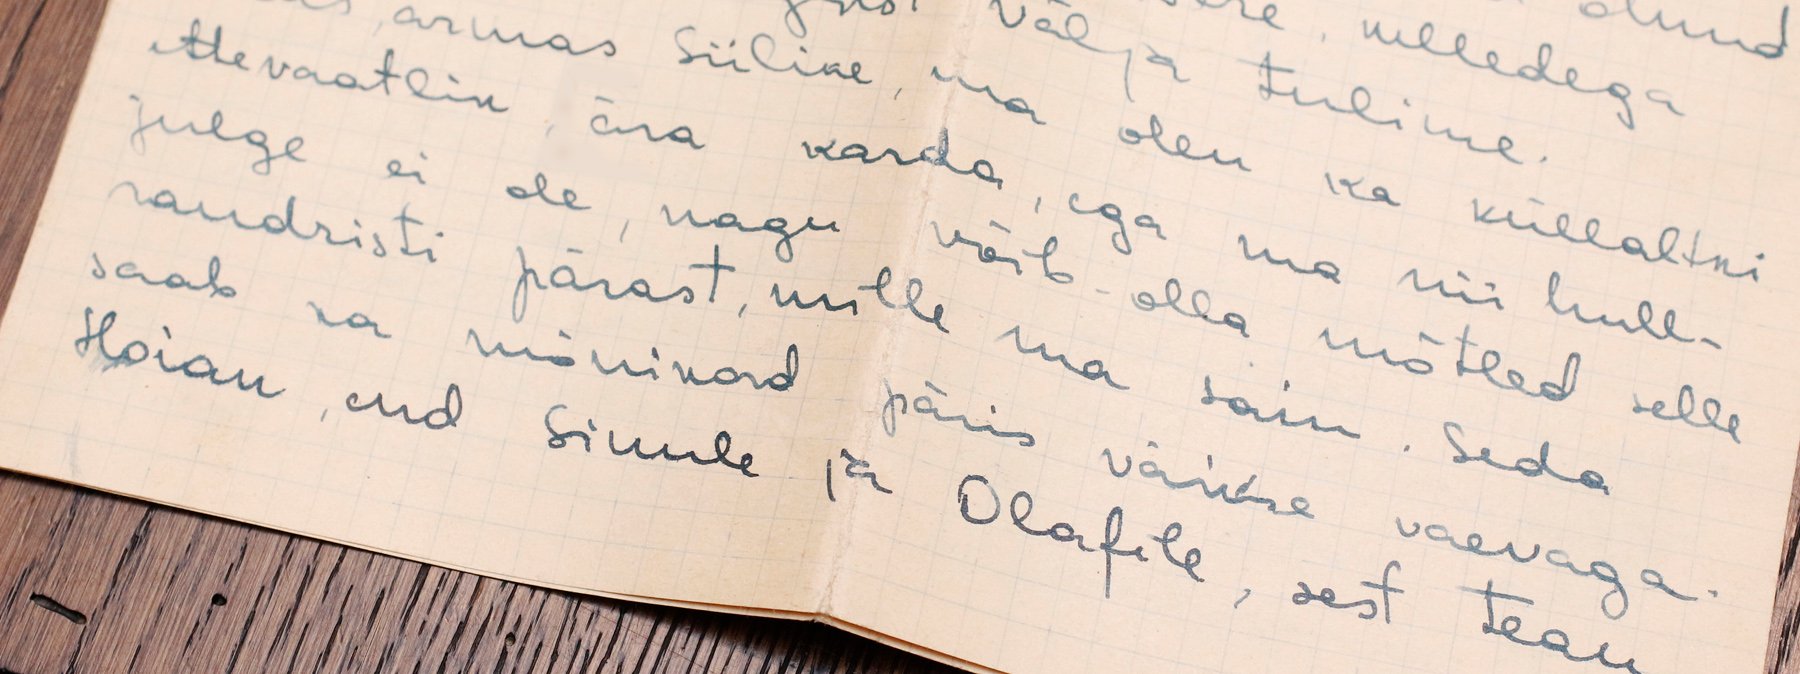 olnud
kelledega
välja tulime.
armas Siilike, ma olen ka küllaltki
ettevaatlik, ära karda, ega ma nii hull-
julge ei ole, nagu võib-olla mõtled selle
raudristi pärast, mille ma sain. Seda
saab ka mõnikord päris väikse vaevaga.
Hoian, end Sinule ja Olafile, sest tean